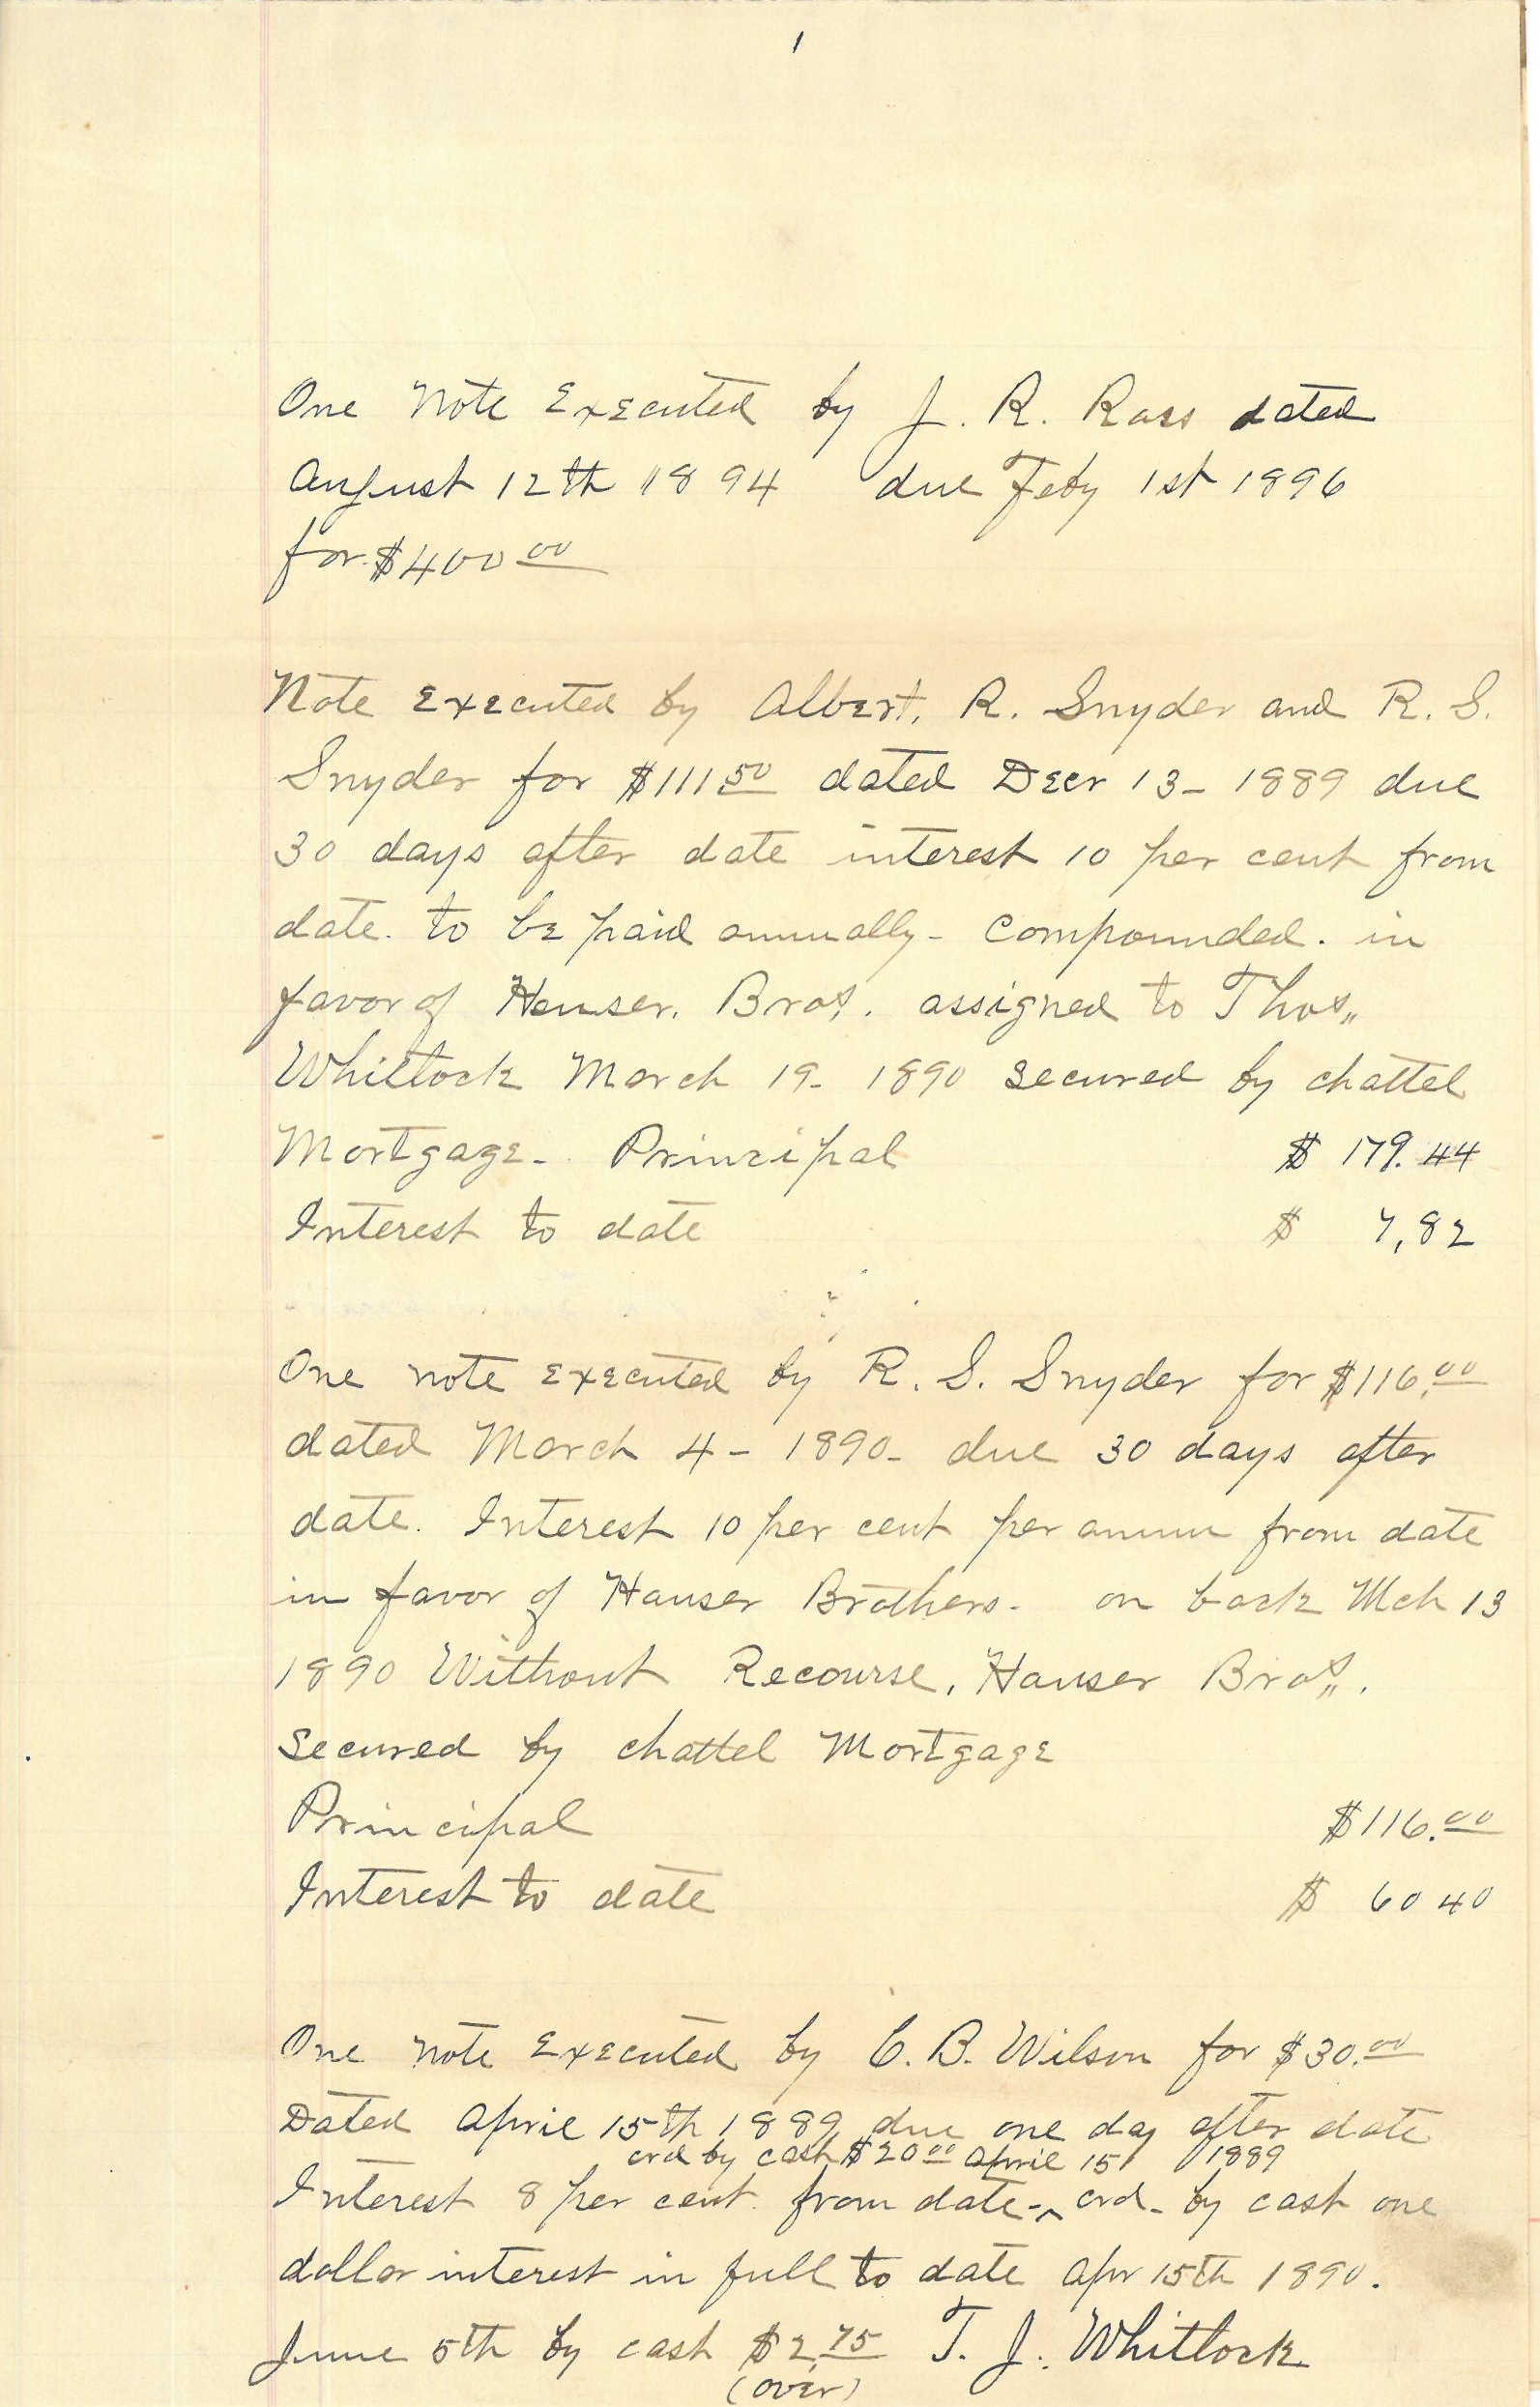 1
One Note Executed by J. R. Ross dated
August 12th 1894 due Feby 1st 1896
for $400 00
Note Executed by Albert. R. Snyder and R. S.
Snyder for $111 50 dated Decr 13- 1889 due
30 days after date interest 10 per cent from
date. to be paid annually- compounded. in
favor of Hauser. Bros. assigned to Thos„
Whitlock March 19- 1890 secured by chattel
Mortgage- Principal $ 179.44
Interest to date $ 7,82
One note executed by R. S. Snyder for $116.00
dated March 4- 1890- due 30 days after
date. Interest 10 per cent per annum from date
in favor of Hauser Brothers- on back Mch 13
1890 Without Recourse, Hauser Bros„.
Secured by chattel Mortgage
Principal $116.00
Interest to date $ 60 40
One note Executed by C. B. Wilson for $30.00
Dated April 15th 1889 due one day after date
crd by cash $20 00 April 15 1889
Interest 8 per cent. from date-^ crd- by cash one
dollar interest in full to date Apr 15th 1890.
June 5th by cash $2,75 T. J. Whitlock
(over)